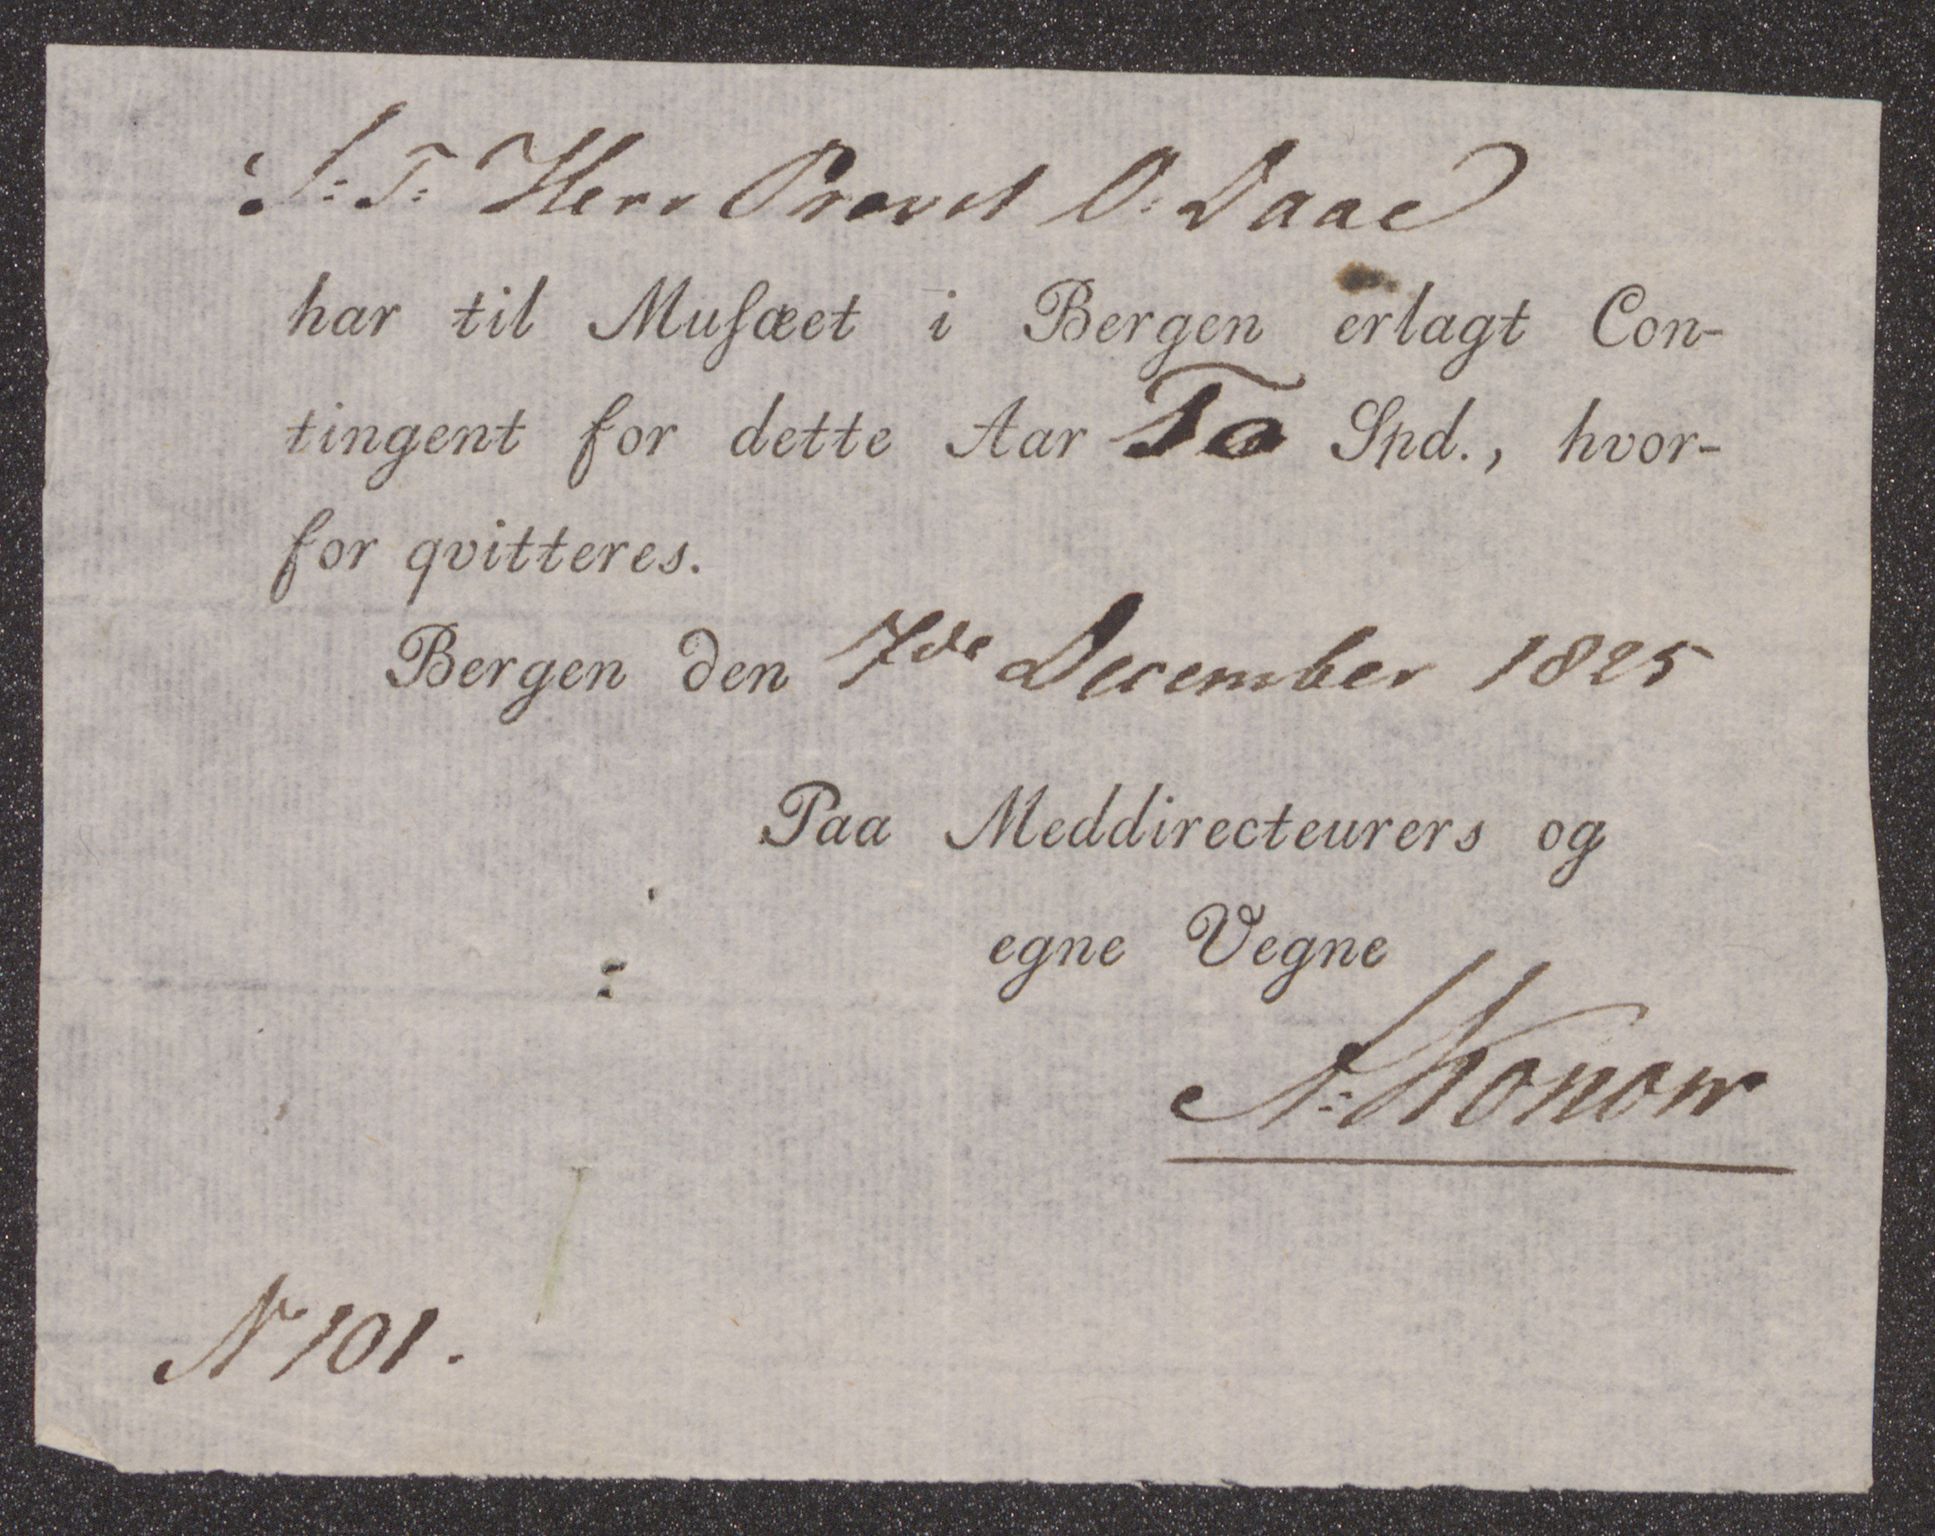 S: T: Herr Provst O: Daae
har til Musæet i Bergen erlagt Con-
tingent for dette Aar To Spd., hvor-
for qvitteres.
Bergen den 7de December 1825
Paa Meddirecteurers og
egne Vegne
A: Konow
N 101.